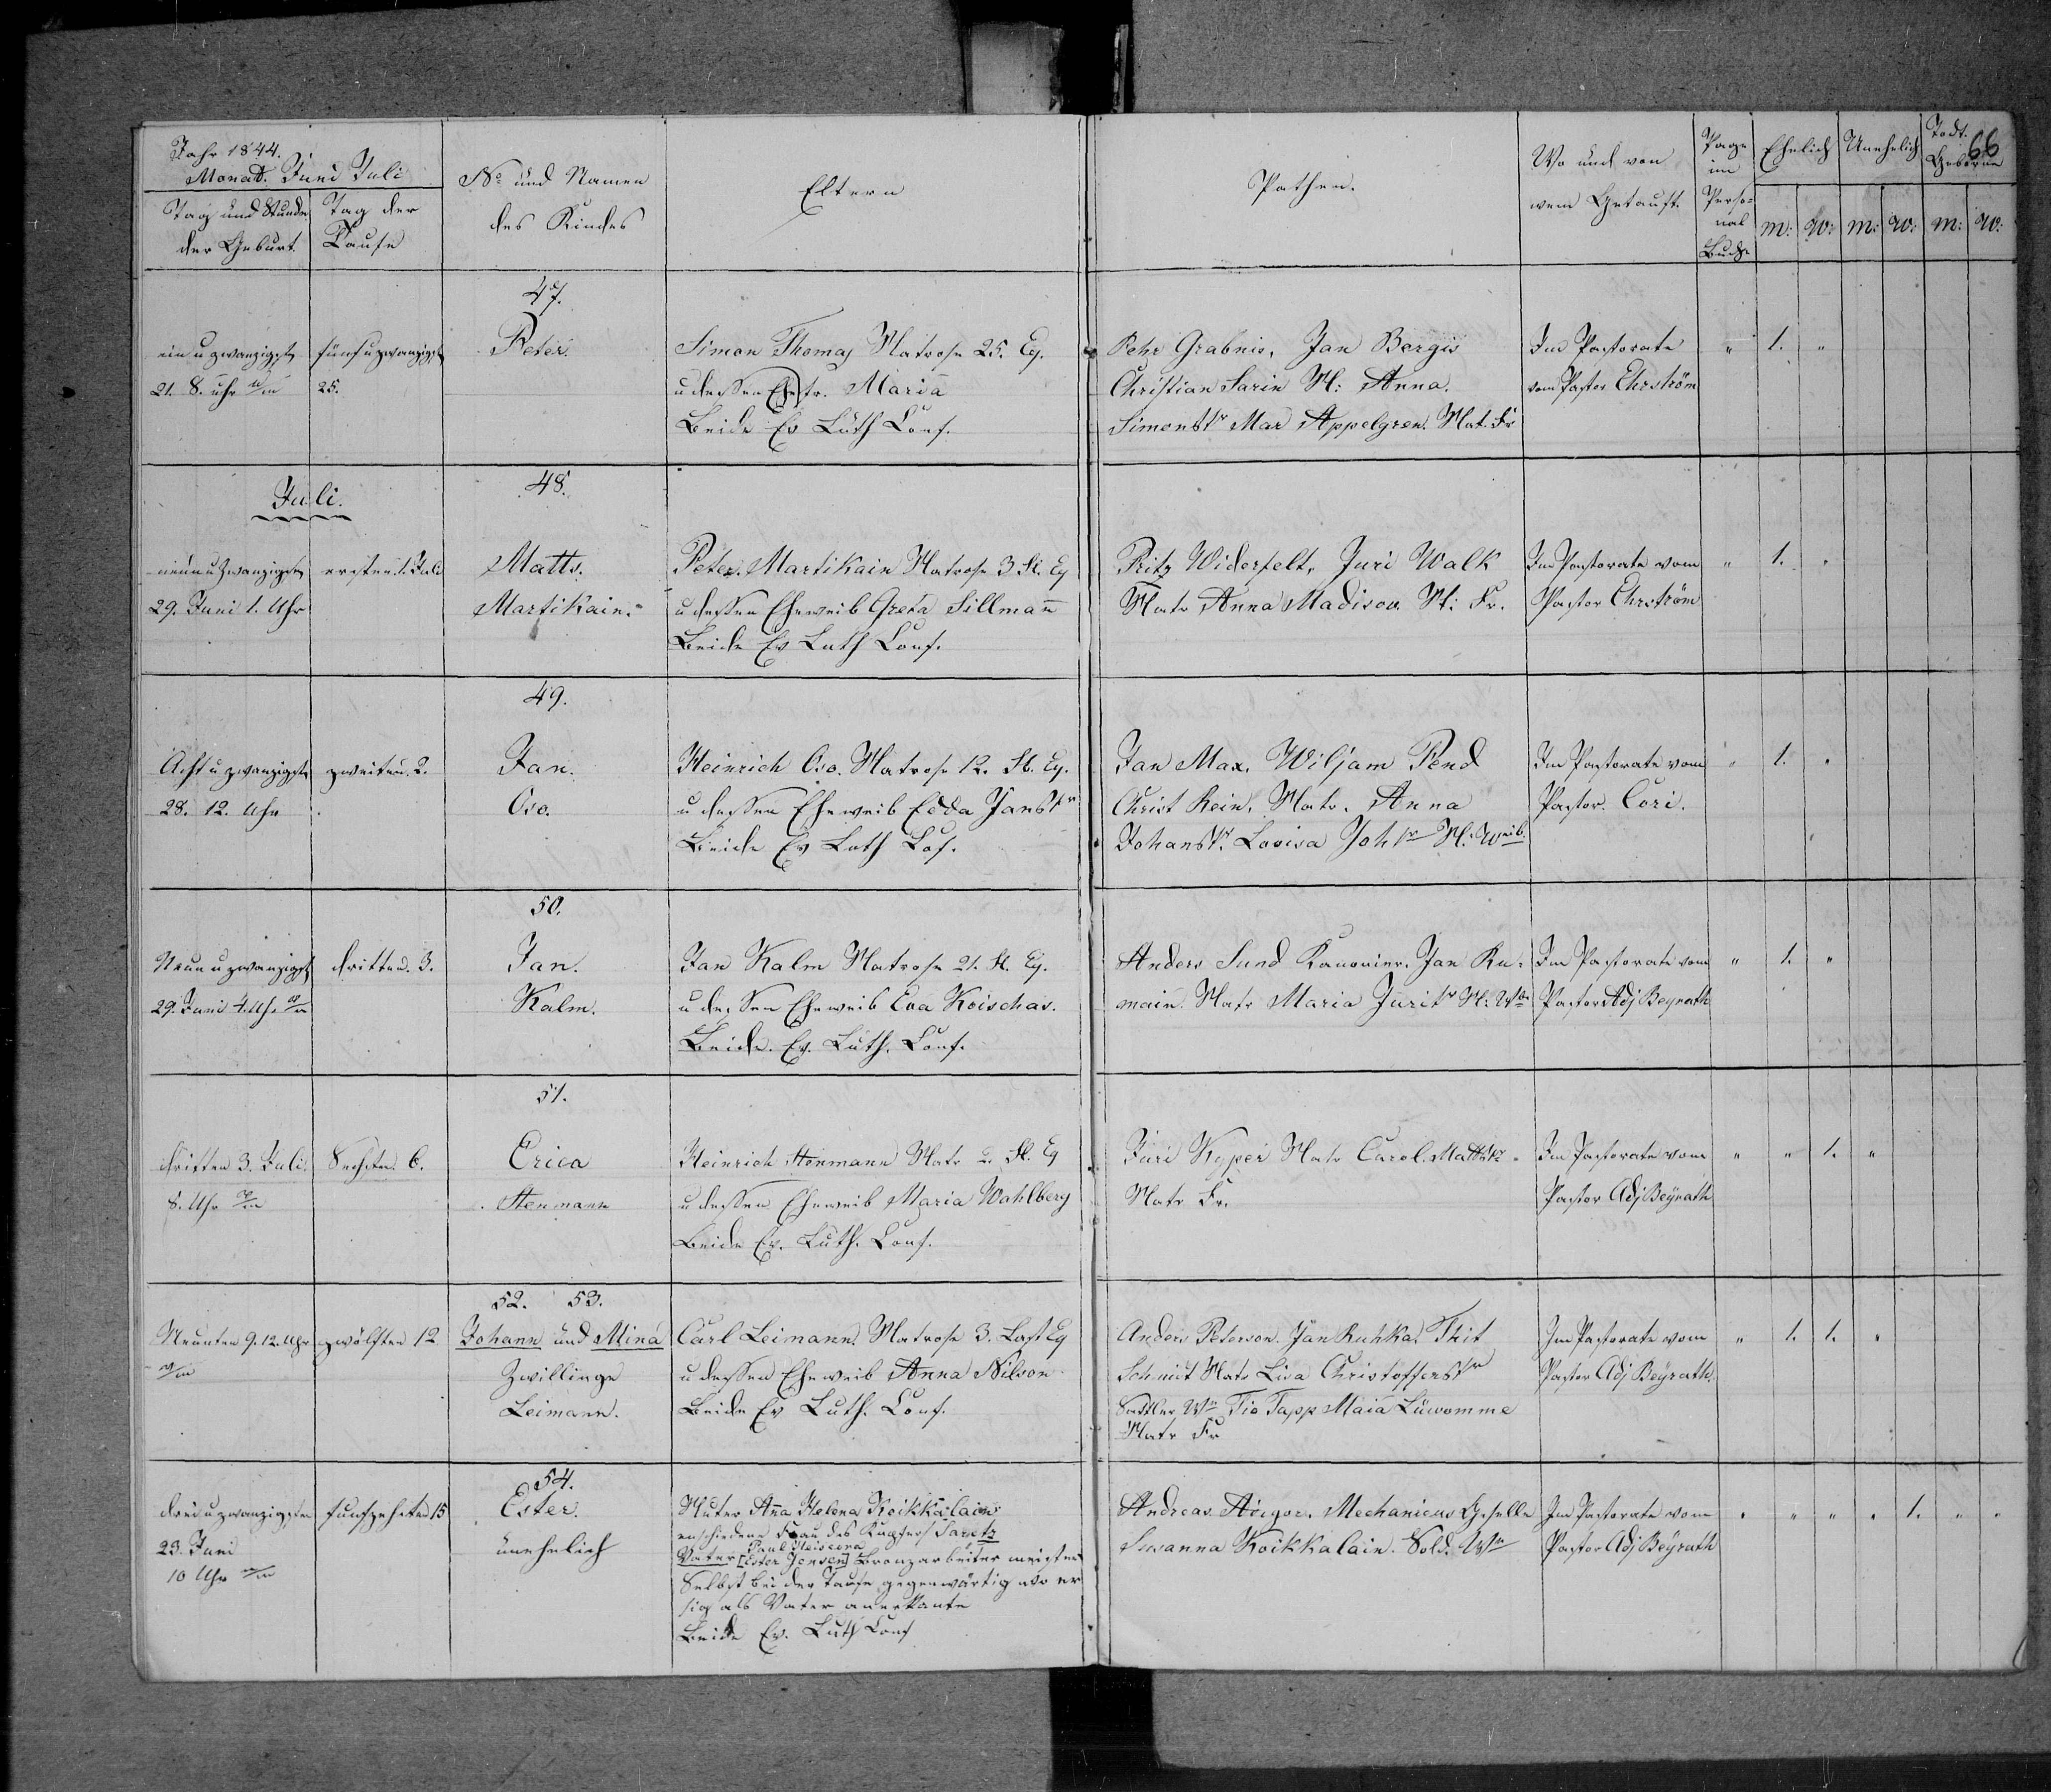 Jahr 1844.
Monat. Juni Juli
Tag und Stunde
der Geburt.
Tag der
Taufe
No und Namen
des Kindes
Eltern
Pathen.
Wo und von
wem Getauft.
Page
im
Perso=
nal
Buche
Ehelich
Unehelich
Todt.
Geborne
66
m: w: m: w: m: w:
47.
ein u zwanzigst
21. 8. uhr
fünf u zwanzigst
25.
Peter.
Simon Thomas Matrose 25. Eq.
u dessen Maria
Beide Ev Luth Conf.
Pehr Grabnis, Jan Bergis
Christian Sarin M: Anna.
Simonstr Mar Appelgren. Mat. Fr
Im Pastorate
vom Pastor Ehrström
" 1. "
Juli.
48.
neun u zwanzigsten
29. Juni 1. Uhr
ersten 1. Juli
Matts.
Martikain.
Peter Martikain Matrose 3 Fl. Eq
u dessen Eheweib Greta Sillman̄
Beide Ev Luth Conf.
Fritz Widerfelt, Juri Walk
Matr Anna Madisov. M: Fr.
Im Pastorate vom
Pastor Ehrström
" 1. "
49.
Acht u zwanzigste
28. 12. Uhr
zweiten. 2.
Jan.
Oso.
Heinrich Oso. Matrose 12. Fl. Eq.
u dessen Eheweib Edda Janstr
Beide Ev Luth Cof.
Jan Max. Wiljam Pend
Christ Rein, Matr. Anna
Johanstr. Lovisa Johtr M: Weib.
Im Pastorate vom
Pastor. Cori.
" 1. "
50.
Neun u zwanzigst
29. Juni 4. Uhr
dritten. 3.
Jan.
Kalm.
Jan Kalm Matrose 21. Fl. Eq.
u dessen Eheweib Eva Koischas.
Beide. Ev. Luth. Conf.
Anders Sund Kanonier. Jan Ku=
main. Matr Maria Juritr M: Wb
Im Pastorate vom
Pastor Adj Beyrath
" 1. "
51.
dritten 3. Juli.
8. Uhr
Sechsten. 6.
Erica
Stenmann
Heinrich Stenmann Matr 2. Fl. Eq
u dessen Eheweib Maria Wahlberg
Beide Ev. Luth. Conf.
Juri Kyper Matr Carol. Mattstr
Matr Fr.
Im Pastorate vom
Pastor Adj Beyrath
" " 1. "
52. 53.
Neunten 9. 12. Uhr
zwölften 12
Johann und Mina
Zwillinge
Leimann.
Carl Leimann. Matrose 3. Last Eq
u dessen Eheweib Anna Nilson
Beide Ev Luth. Conf.
Anders Peterson. Jan Ruhka. Thit
Schmit Matr Lisa Christofferstr
Sattler Wn Tio Tapp Maia Luwomme
Matr Fr
Im Pastorate vom
Pastor Adj Beyrath.
" 1. 1. "
54.
drei u zwanzigsten
23. Juni
10 Uhr
funfzehnten 15
Ester.
unehelich
Muter Anna Helena Koikkalain
geschiedene Frau des Kupfers Saretz
Paul Heiscena
Vater [Ester Jensen] Bronzarbeiter meister
Selbst bei der Taufe gegenwärtig wo er
sich als Vater anerkante
Beide Ev. Luth Conf
Andreas. Aigor. Mechanicus Geselle
Susanna Koikkalain. Sold. Wn
Im Pastorate vom
Pastor Adj Beyrath
" " " " 1. " "